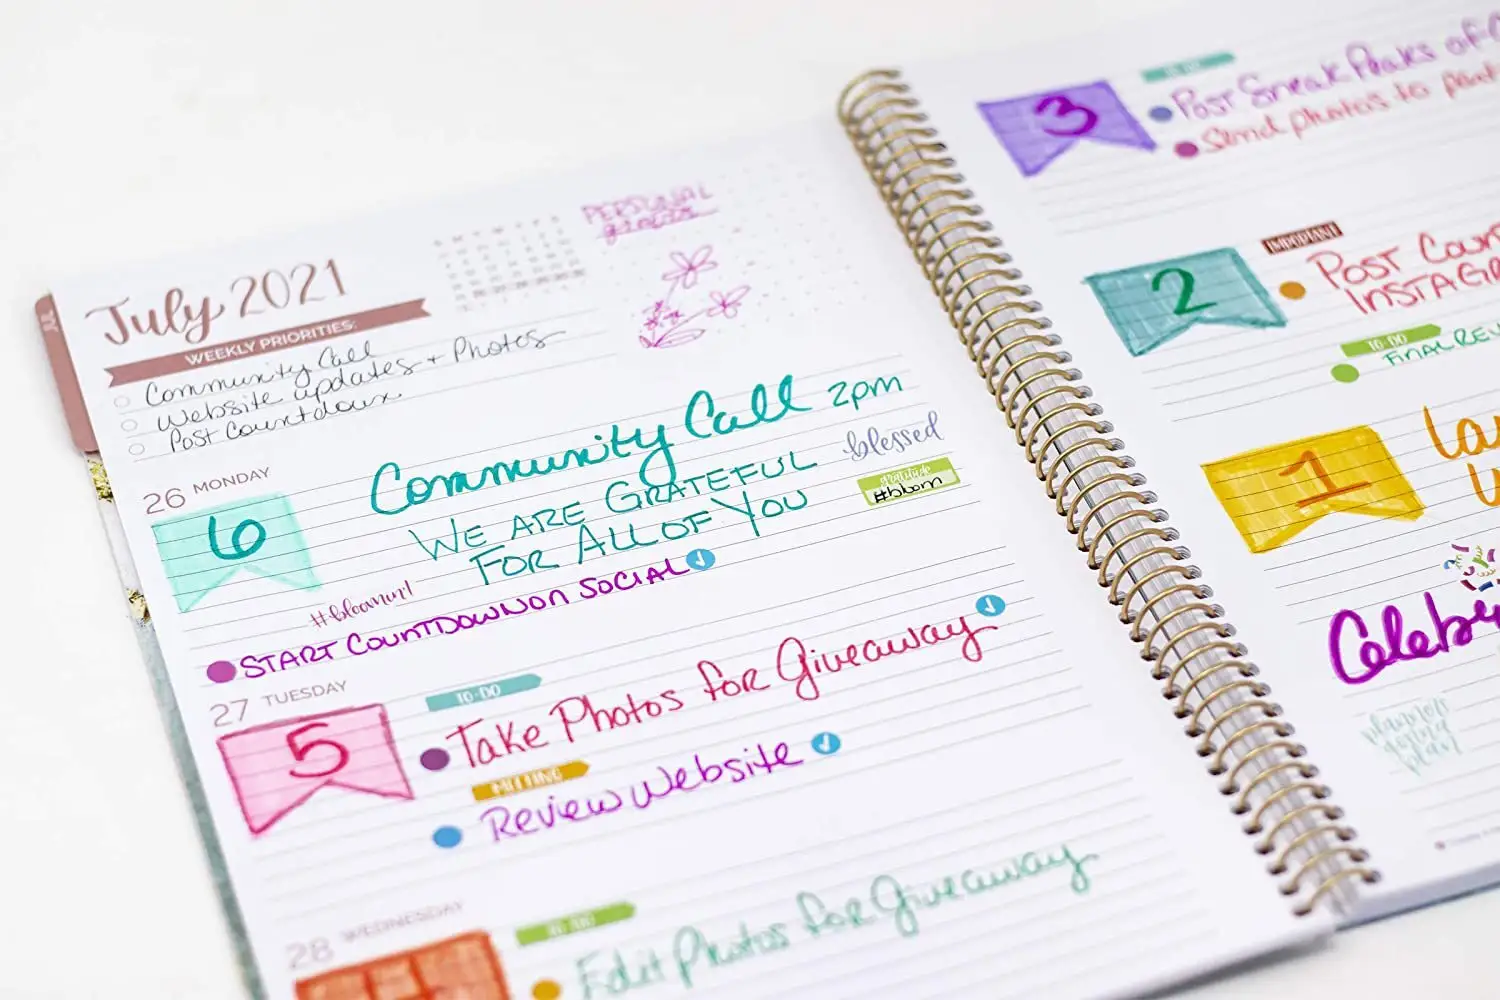 JUL
July 2021
WEEKLY PRIORITIES:
Community Call
Website updates + Photos
Post Countdown
PERSONAL
26 MONDAY
6
Community Call 2pm
WE ARE GRATEFUL
FOR ALL OF YOU
blessed
gratitude
#bloom
#bloomin'
START COUNTDOWN ON SOCIAL
27 TUESDAY
5
TO-DO
Take Photos for Giveaway
MEETING
Review Website
28 WEDNESDAY
4
TO-DO
Edit Photos for Giveaway
3
TO-DO
Post Sneak Peaks of
Send photos to
2
IMPORTANT
POST COUNT
INSTAGR
TO-DO
FINAL REV
1
La
Celebr
planners
gonna
plan